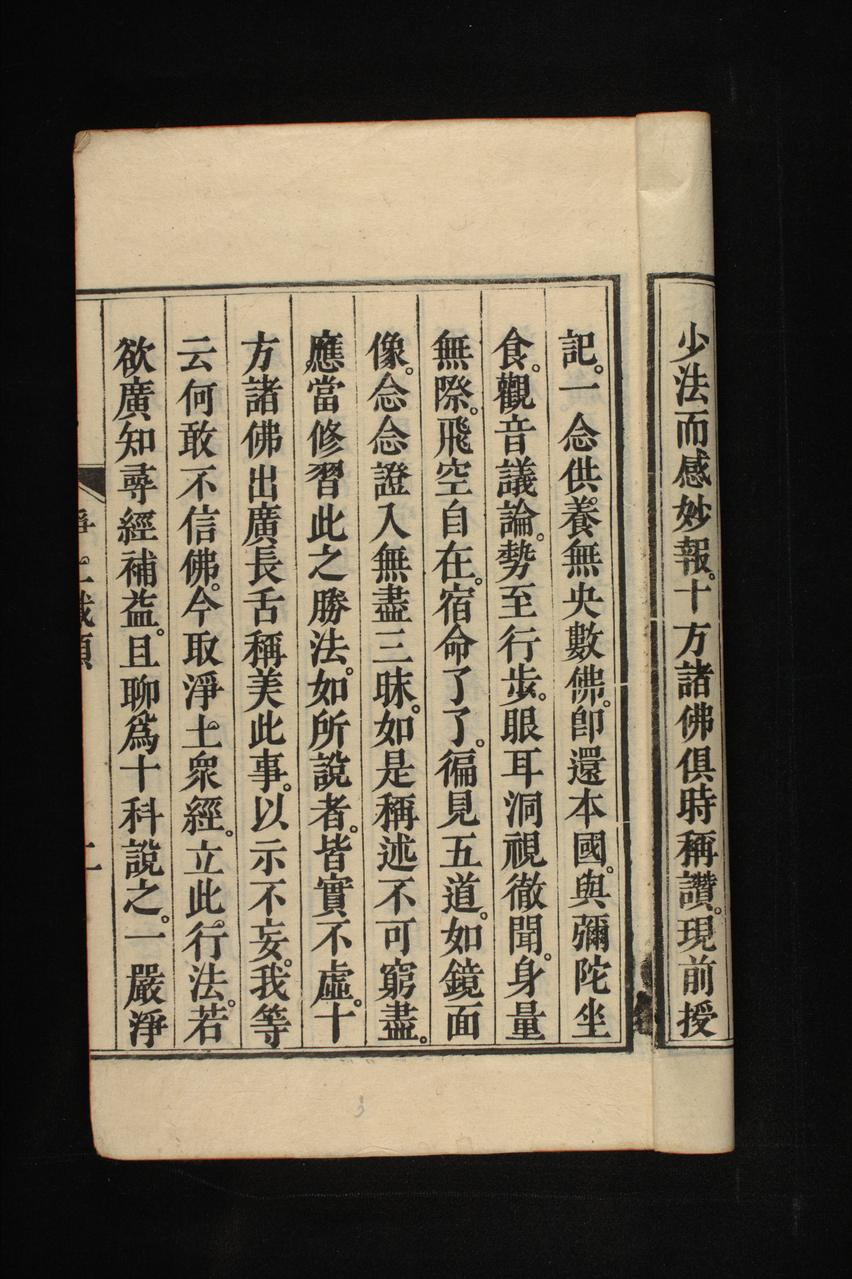 少法而感妙報。十方諸佛俱時稱讚。現前授
記。一念供養無央數佛。卽還本國。與彌陀坐
食。觀音議論。勢至行步。眼耳洞視徹聞。身量
無際。飛空自在。宿命了了。徧見五道。如鏡面
像。念念證入無盡三昧。如是稱述不可窮盡。
應當修習此之勝法。如所說者。皆實不虛。十
方諸佛出廣長舌稱美此事。以示不妄。我等
云何敢不信佛。今取淨土衆經。立此行法。若
欲廣知尋經補益。且聊爲十科說之。一嚴淨